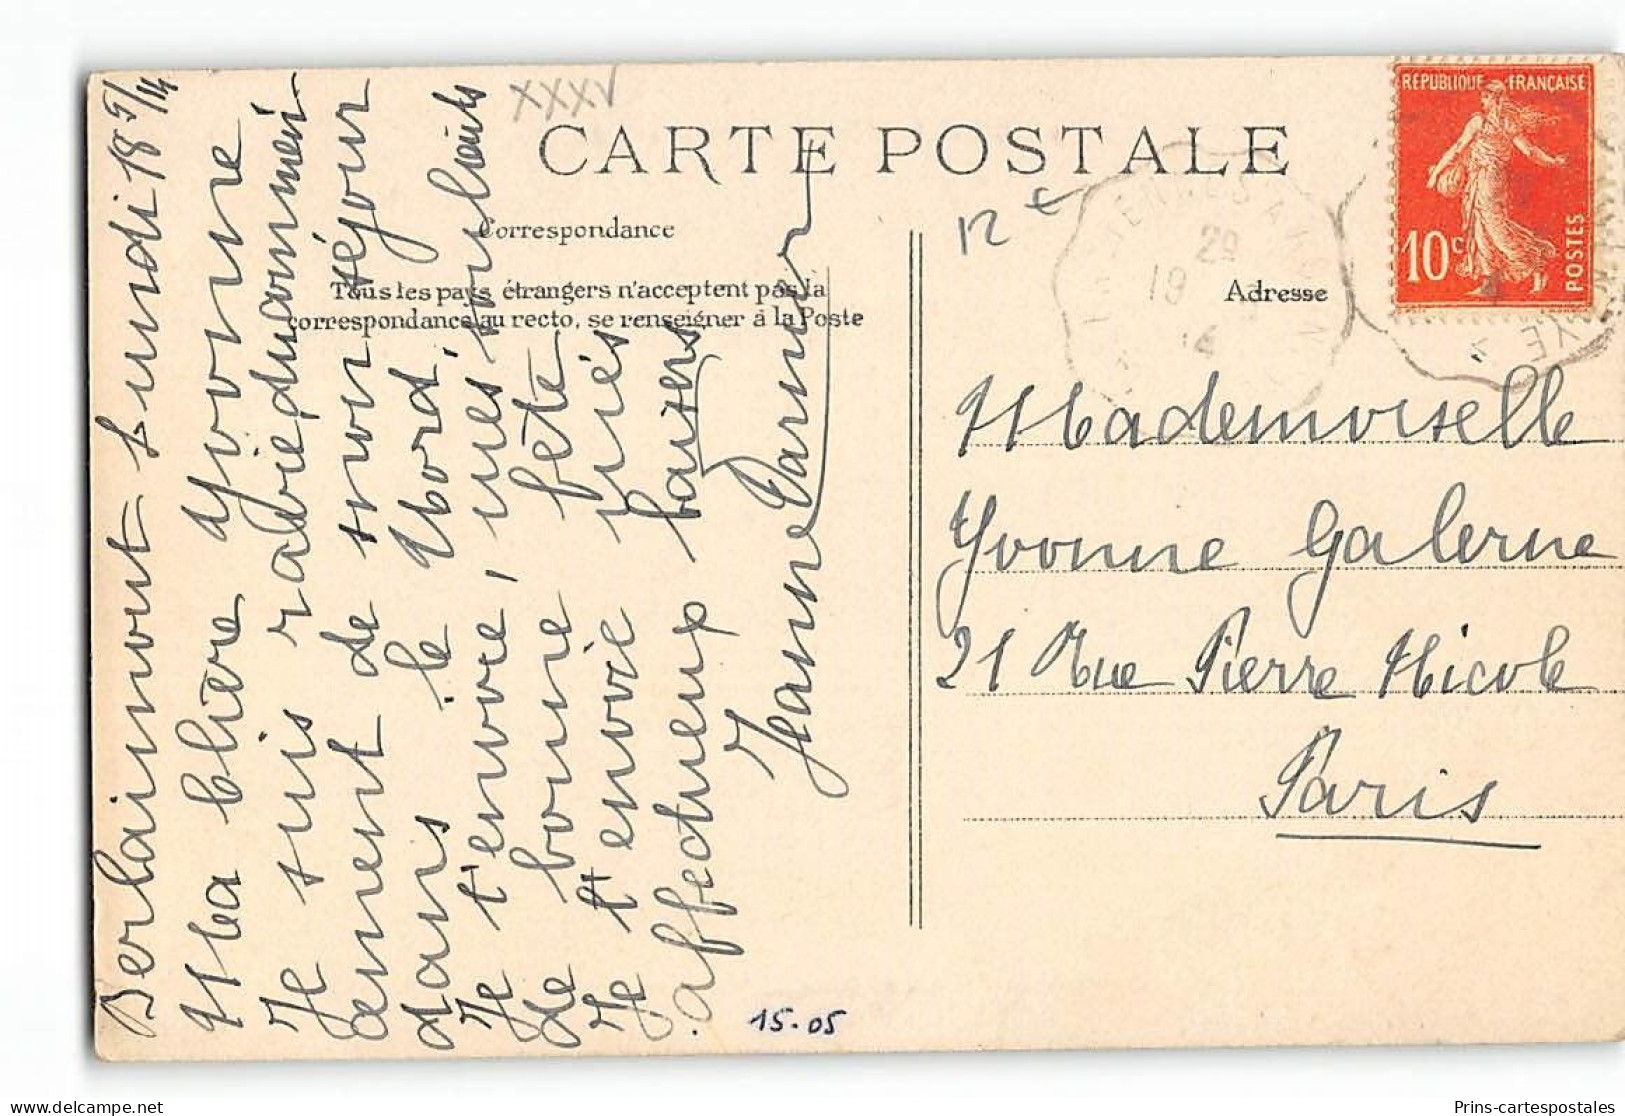 XXXV
CARTE POSTALE
RÉPUBLIQUE FRANÇAISE
10c
POSTES
12 €
Correspondance
Tous les pays étrangers n'acceptent pas la
correspondance au recto, se renseigner à la Poste
Adresse
29
19
14
YE
Berlaimont Lundi 18 5/14
Ma chère Yvonne
Je suis ravie du
ament de mon séjour
dans le Nord,
Je t'envoie, mes souhaits
de bonne fête
Je t'envoie mes
affectueux baisers
Jeanne
Mademoiselle
Yvonne Galerne
21 Rue Pierre Nicole
Paris
15-05
Prins-cartespostales